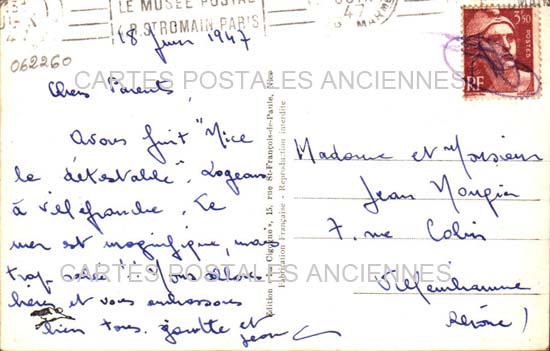 LE MUSÉE POSTAL
4 R. ST ROMAIN PARIS
47
18 Juin 1947
062260
3F50
POSTES
RF
CARTES POSTALES ANCIENNES
Chers Parents,
Avons fuit "Nice
la détestable". Logeons
à Villefranche. La
mer est magnifique, mais
trop salée !!
et vous embrassons
bien tous. Ginette et
Jean
Edition « La Cigogne », 15, rue St-François-de-Paule, Nice
Fabrication Française - Reproduction interdite
Madame et Monsieur
Jean Mongin
7, rue Colin
Villeurbanne
(Rhône)
CARTES POSTALES ANCIENNES